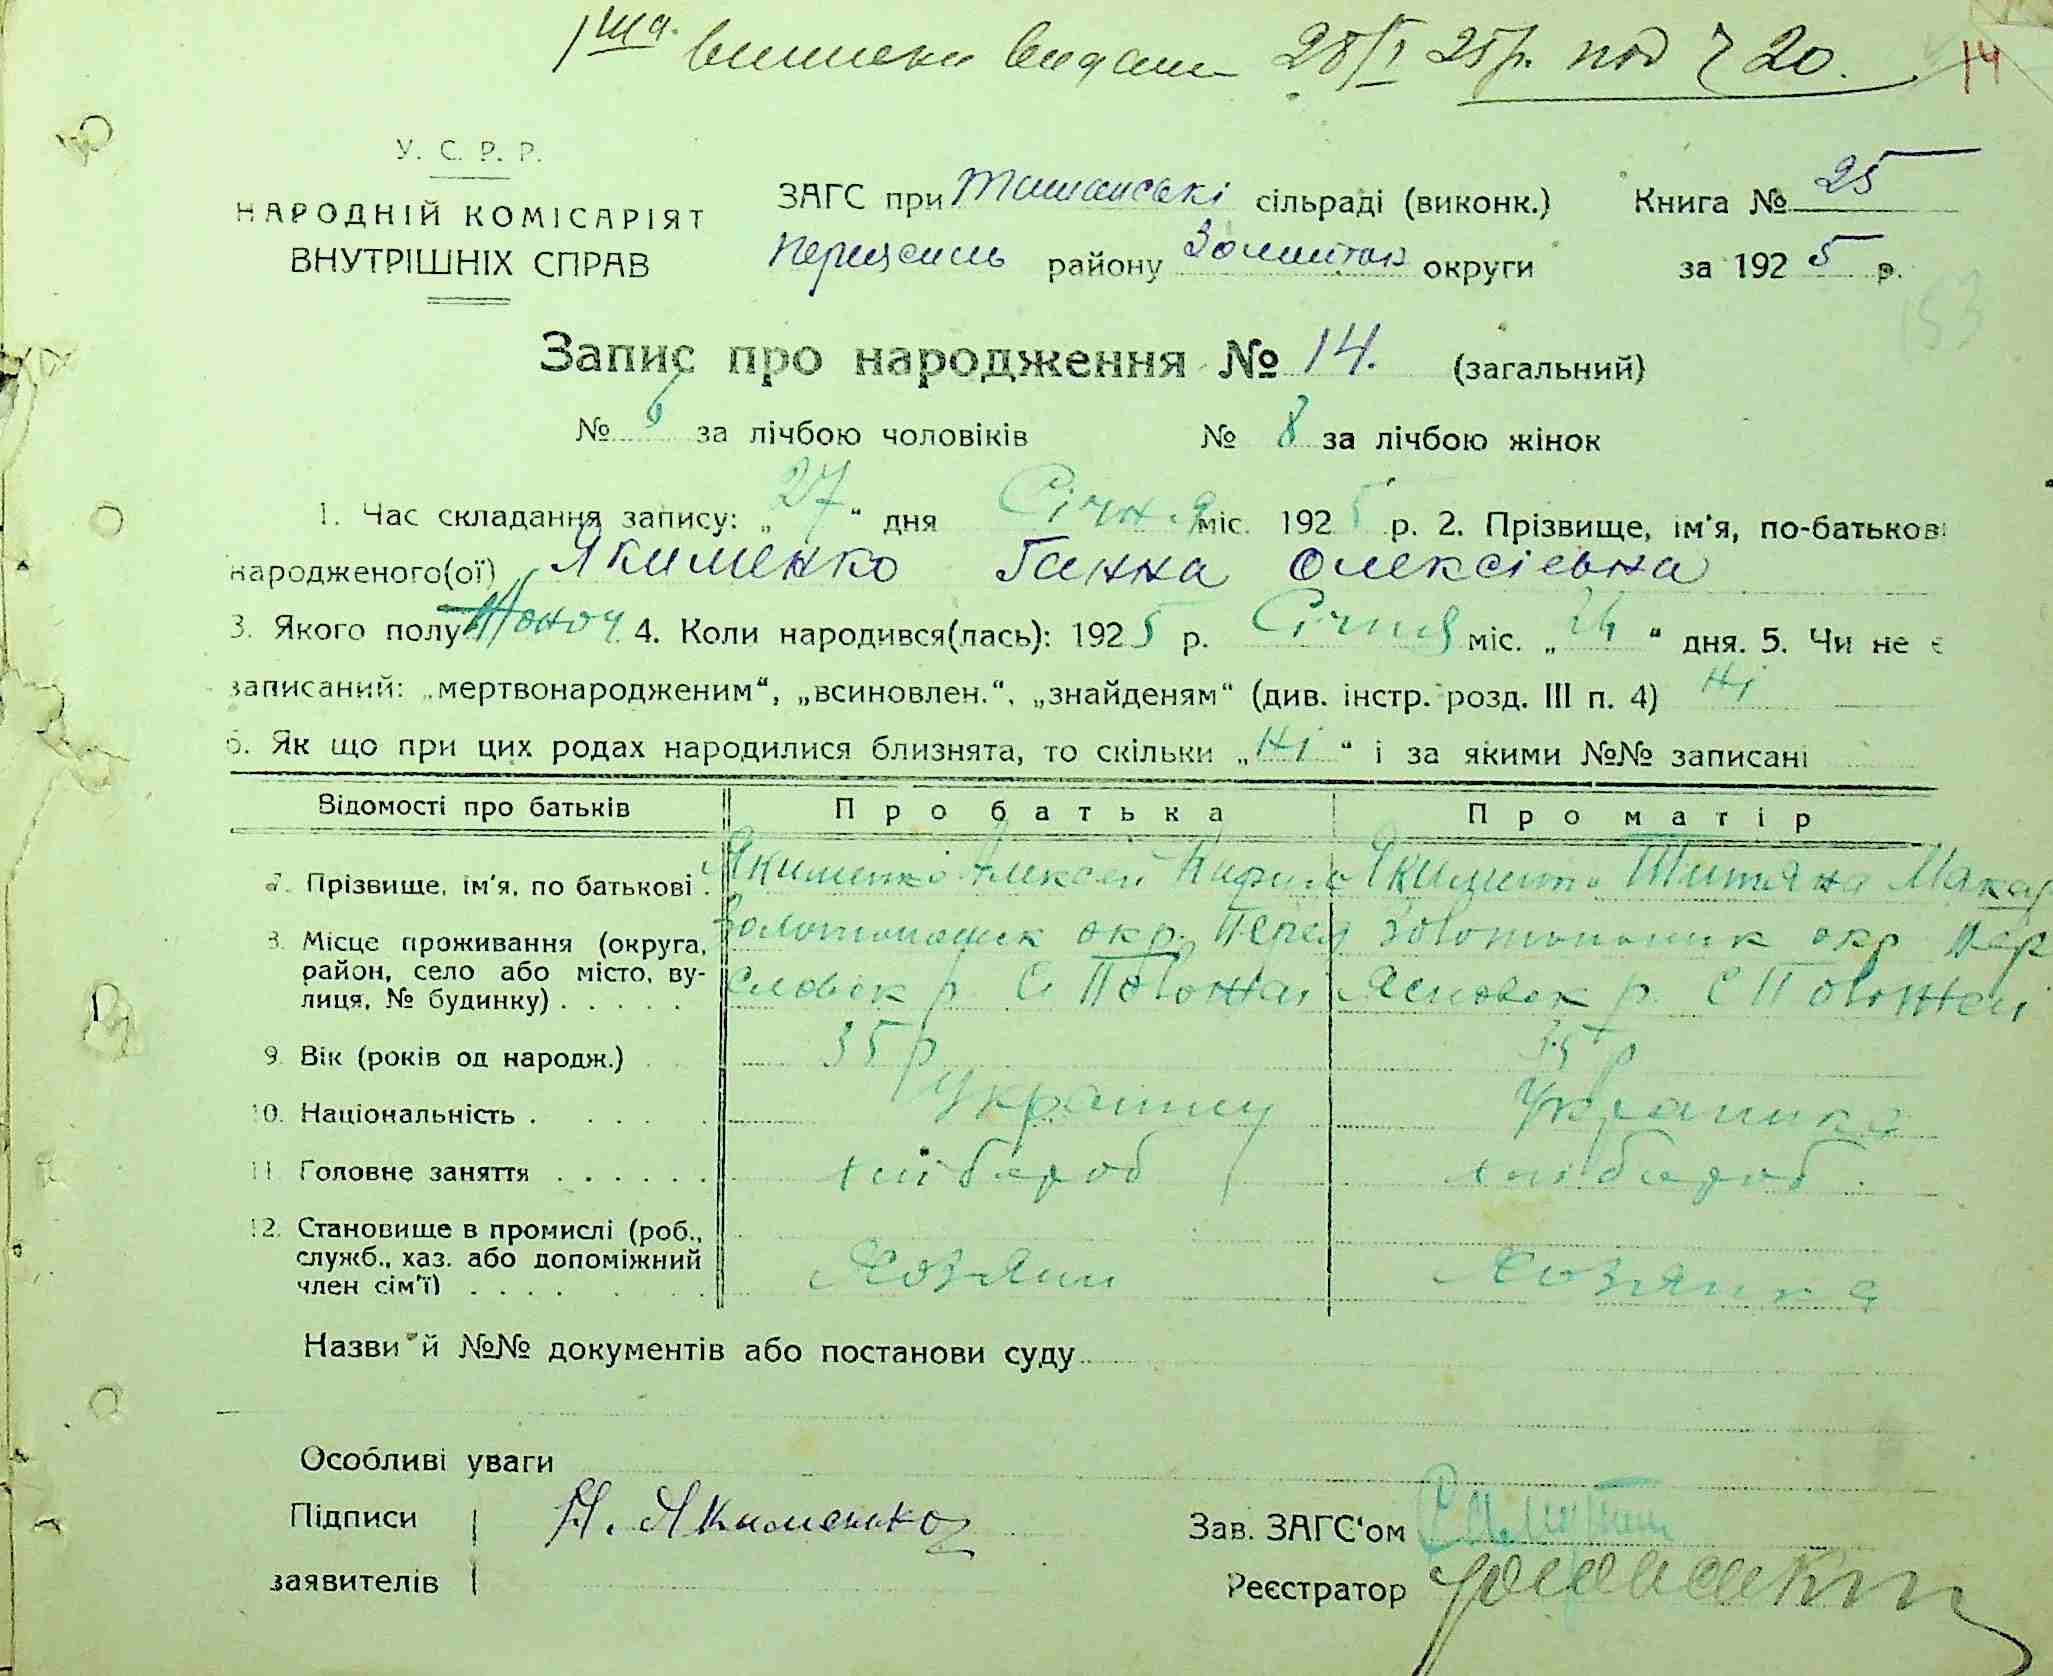 1ша. выписка выдана 28/I 25 р. под № 20.
14
У. С. Р. Р.
НАРОДНІЙ КОМІСАРІЯТ
ВНУТРІШНІХ СПРАВ
ЗАГС при Ташанські сільраді (виконк.) Книга № 25
району Золотон округи за 1925 р.
153
Запис про народження № 14. (загальний)
№ 6 за лічбою чоловіків № 8 за лічбою жінок
1. Час складання запису: „27“ дня Січня міс. 1925 р. 2. Прізвище, ім'я, по-батькові
народженого(ої) Якименко Ганна Олексієвна
3. Якого полу Жоноч 4. Коли народився(лась): 1925 р. Січня міс. „24“ дня. 5. Чи не є
записаний: „мертвонародженим“, „всиновлен.“, „знайденям“ (див. інстр. розд. III п. 4) Ні
6. Як що при цих родах народилися близнята, то скільки „Ні“ і за якими №№ записані
Відомості про батьків Про батька Про матір
7. Прізвище, ім'я, по батькові. Якименко Алексей Кирил Якименко Титяна Макар
8. Місце проживання (округа, Золотоношск окр. Перея Золотоношск окр Пер
район, село або місто, ву- словск р. С Повожаі яславск р. С Повожаі
лиця, № будинку) . . . . .
9. Вік (років од народж.) 35 р 35 р
10. Національність . . . . Украінец Украинка
11. Головне заняття . . . . . . хлібароб хлібароб
12. Становище в промислі (роб.,
служб., хаз. або допоміжний Хозяин Хозяика
член сім'ї) . . . .
Назви й №№ документів або постанови суду
Особливі уваги
Підписи А. Якименко Зав. ЗАГС'ом
заявителів Реєстратор